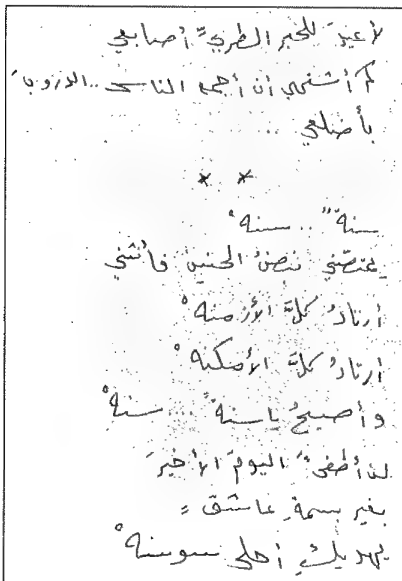 لأعيدَ للحبر الطريِّ أصابعي
كم أشتهي أن أجمع الناس .. الدروبَ
بأضلعي ..
* *
سنة .. سنه ْ
نبضُ الحنين فأنثني
أرتادُ كلَّ الأزمنه ْ
أرتادُ كلَّ الأمكنه ْ
وأصيحُ يا سنة ً ... سنه ْ
لن أطفئَ اليومَ الأخيرَ
بغير بسمةِ عاشقٍ
يهديكِ أحلى سوسنه ْ